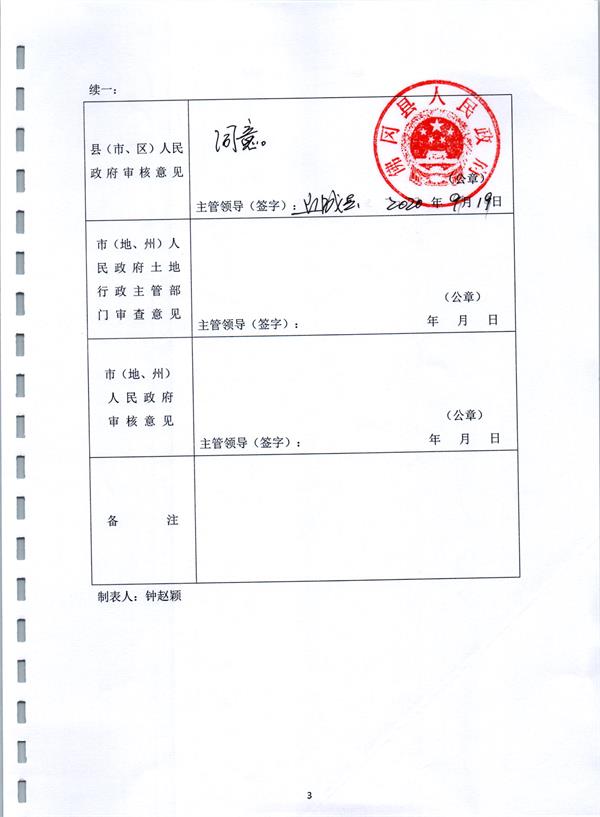 续一：
县（市、区）人民
政府审核意见
同意。
佛冈县人民政府
（公章）
主管领导（签字）：
2020 年 9 月 19 日
市（地、州）人
民政府土地
行政主管部
门审查意见
（公章）
主管领导（签字）：
年 月 日
市（地、州）
人民政府
审核意见
（公章）
主管领导（签字）：
年 月 日
备 注
制表人：钟赵颖
3